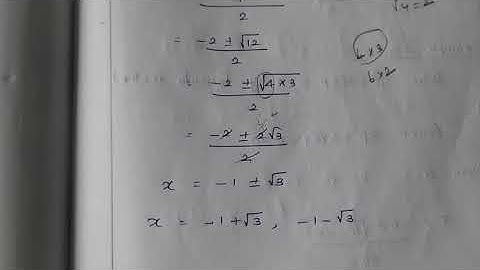 2
√4 = 2
= -2 ± √12
2
6×3
6×2
-2 ± √4×3
2
= -2 ± 2√3
2
x = -1 ± √3
x = -1+√3 , -1-√3